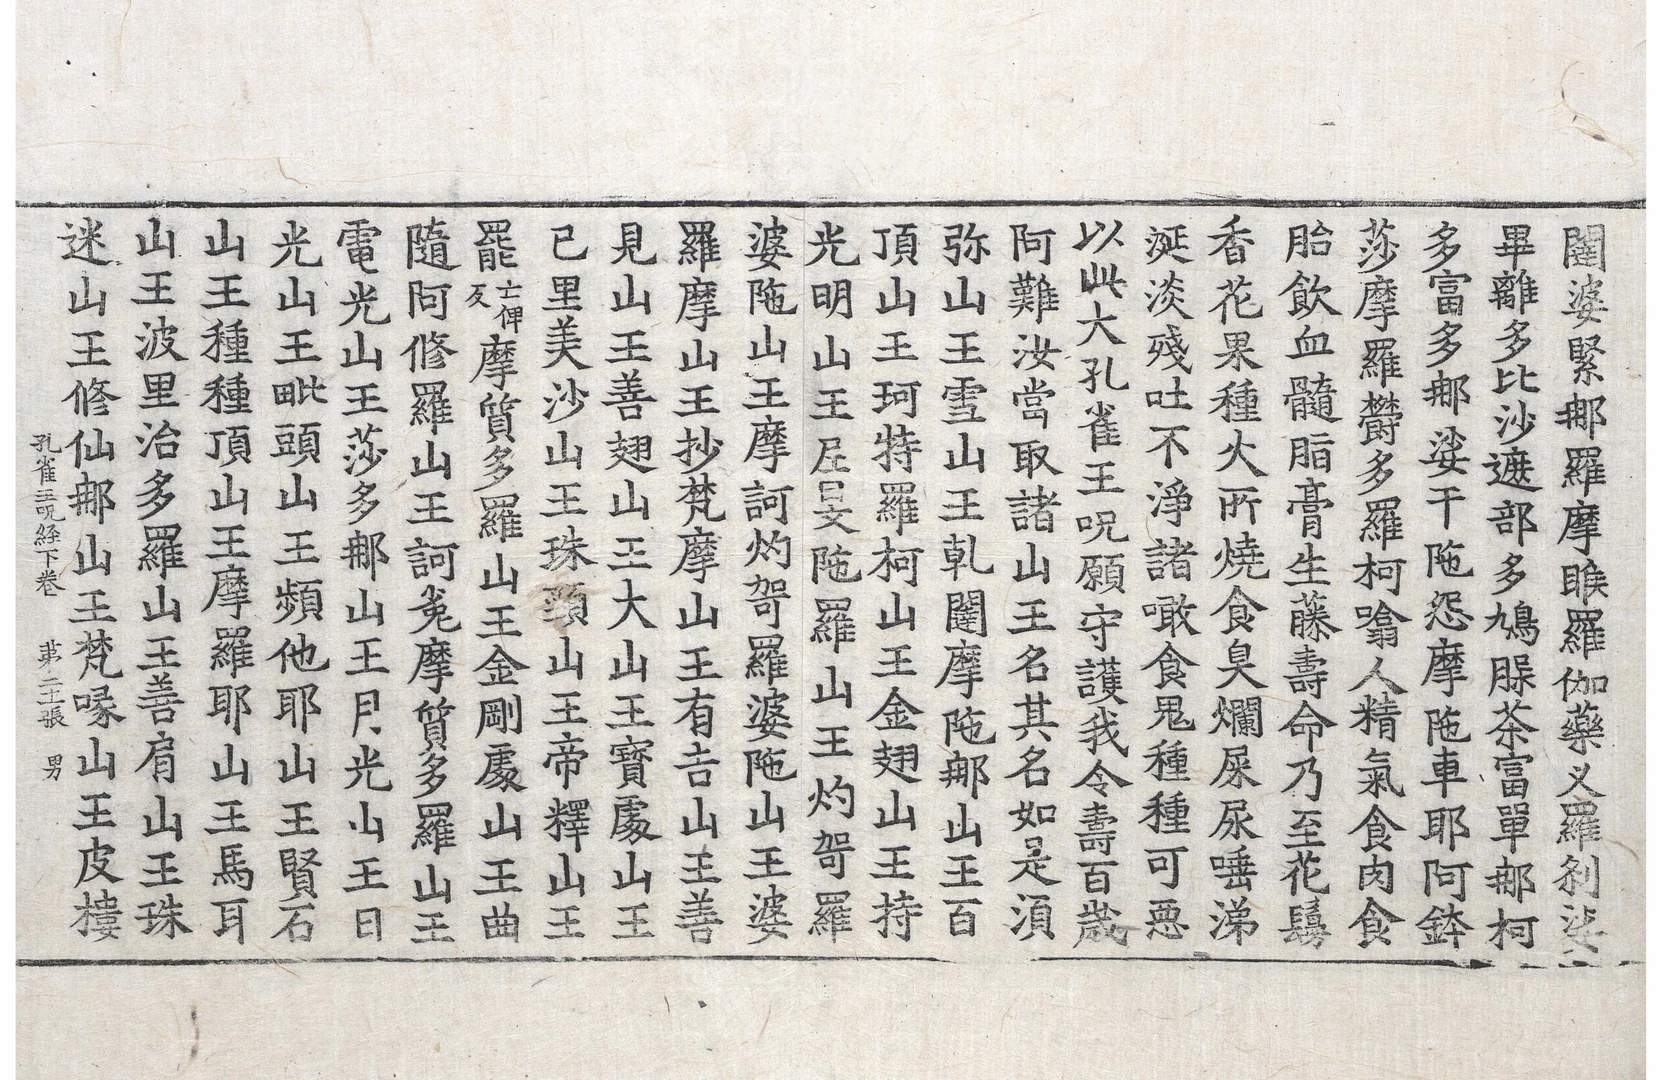 闥婆緊那羅摩睺羅伽藥叉羅刹娑
畢離多比沙遮部多鳩脲茶富單那柯
多富多那娑干陁怨摩陁車耶阿鉢
莎摩羅欝多羅柯噏人精氣食肉食
胎飲血髓脂膏生藤壽命乃至花鬘
香花果種火所燒食臭爛屎尿唾涕
涎淡殘吐不淨諸噉食鬼種種可惡
以此大孔雀王呪願守護我令壽百歲
阿難汝當取諸山王名其名如是須
弥山王雪山王乹闥摩陁那山王百
頂山王珂特羅柯山王金翅山王持
光明山王𡰱旻陁羅山王灼哿羅
婆陁山王摩訶灼哿羅婆陁山王婆
羅摩山王抄梵摩山王有吉山王善
見山王善翅山王大山王寶處山王
已里美沙山王珠頸山王帝釋山王
罷亡俾反摩質多羅山王金剛處山王曲
隨阿修羅山王訶菟摩質多羅山王
電光山王莎多那山王月光山王日
光山王毗頭山王頻他耶山王賢石
山王種種頂山王摩羅耶山王馬耳
山王波里治多羅山王善肩山王珠
迷山王修仙那山王梵喙山王皮樓
孔雀王呪経下卷　第二十張　男